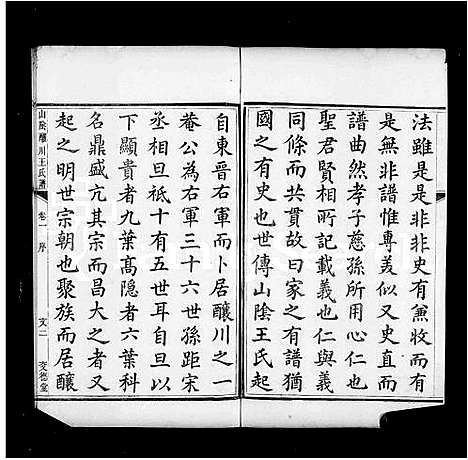 法雖是是非非史有兼收而有
是無非譜惟專美似又史直而
譜曲然孝子慈孫所用心仁也
聖君賢相所記載義也仁與義
同條而共貫故曰家之有譜猶
國之有史也世傳山陰王氏起
自東晉右軍而卜居釀川之一
菴公為右軍三十六世孫距宋
丞相旦祗十有五世耳自旦以
下顯貴者九葉高隱者六葉科
名鼎盛亢其宗而昌大之者又
起之明世宗朝也聚族而居釀
山陰釀川王氏譜 卷一 序 文二